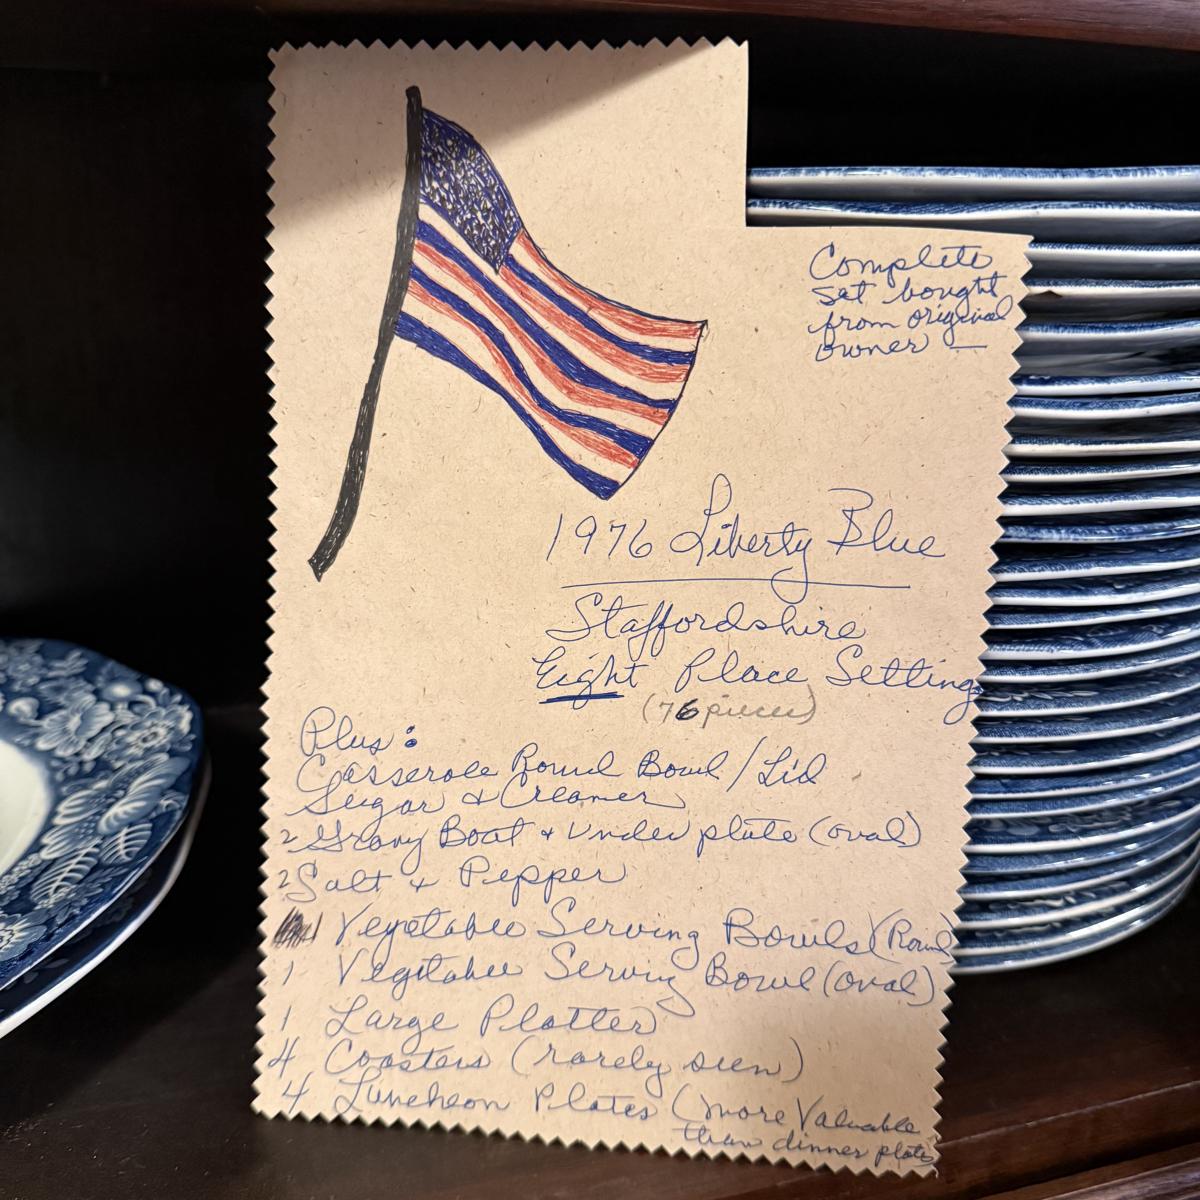 Complete
set bought
from original
owner —
1976 Liberty Blue
Staffordshire
Eight Place Setting
(76 pieces)
Plus:
Casserole Round Bowl / Lid
Sugar & Creamer
2 Gravy Boat & Under plate (oval)
2 Salt & Pepper
Vegetable Serving Bowls (Round)
1 Vegetable Serving Bowl (oval)
1 Large Platter
4 Coasters (rarely seen)
4 Luncheon Plates (more Valuable
than dinner plate